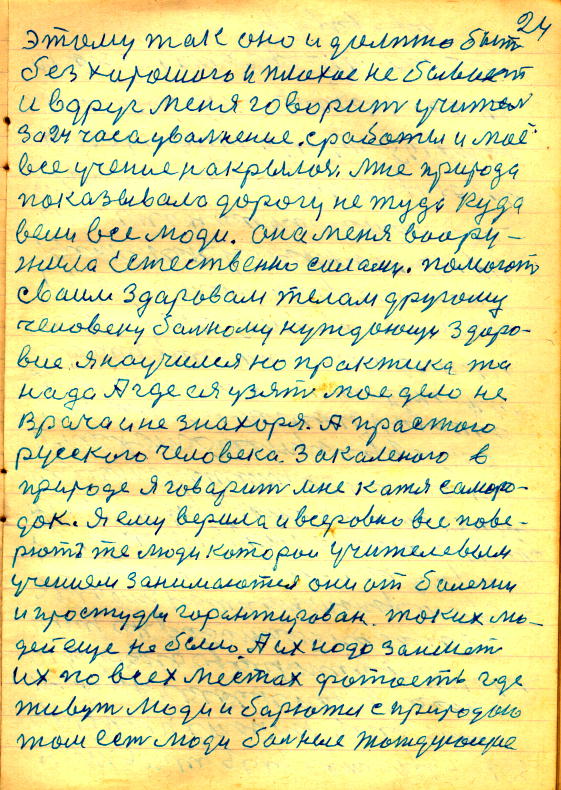 24
этому так оно и должно быть
без хорошого и плохое не бывает
и вдруг меня говорит учител
за 24 часа увалнение. с работы и моё
все учение накрылоя. мне природа
показывало дорогу не туда куда
вели все люди. она меня воору-
жила естественно силами. помогать
своим здаровам телам другому
человеку балному нуждающи здоро-
вие я научился но практика та
нада А где ея узят мое дело не
врача и не знахоря. А прастого
русского человека закаленого в
природе я говарит мне катя саморо-
док. Я ему верила и всеровно все пове-
рют те люди которои учителевым
учением занимаются они от балезни
и простуды гарантирован. таких лю-
дей еще не было. А их надо занимат
их по всех местах фатоеть где
живут люди и барюти с природаю
там ест люди балные нождующие